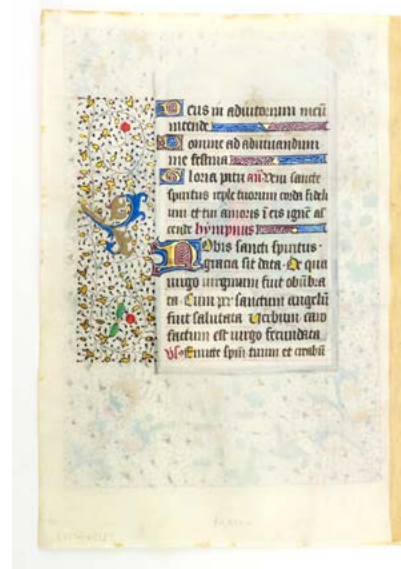 Deus in adiutorium meū
intende
Domine ad adiuuandum
me festina
Gloria patri añ Veni sancte
spiritus reple tuorum corda fideli
um et tui amoris ī eis ignē ac
cende hympnus
Nobis sancti spiritus
gracia sit data De qua
uirgo uirginum fuit obūbra
ta Cum per sanctum angelū
fuit salutata Verbum caro
factum est uirgo fecundata
vs Emitte spm̄ tuum et creabū